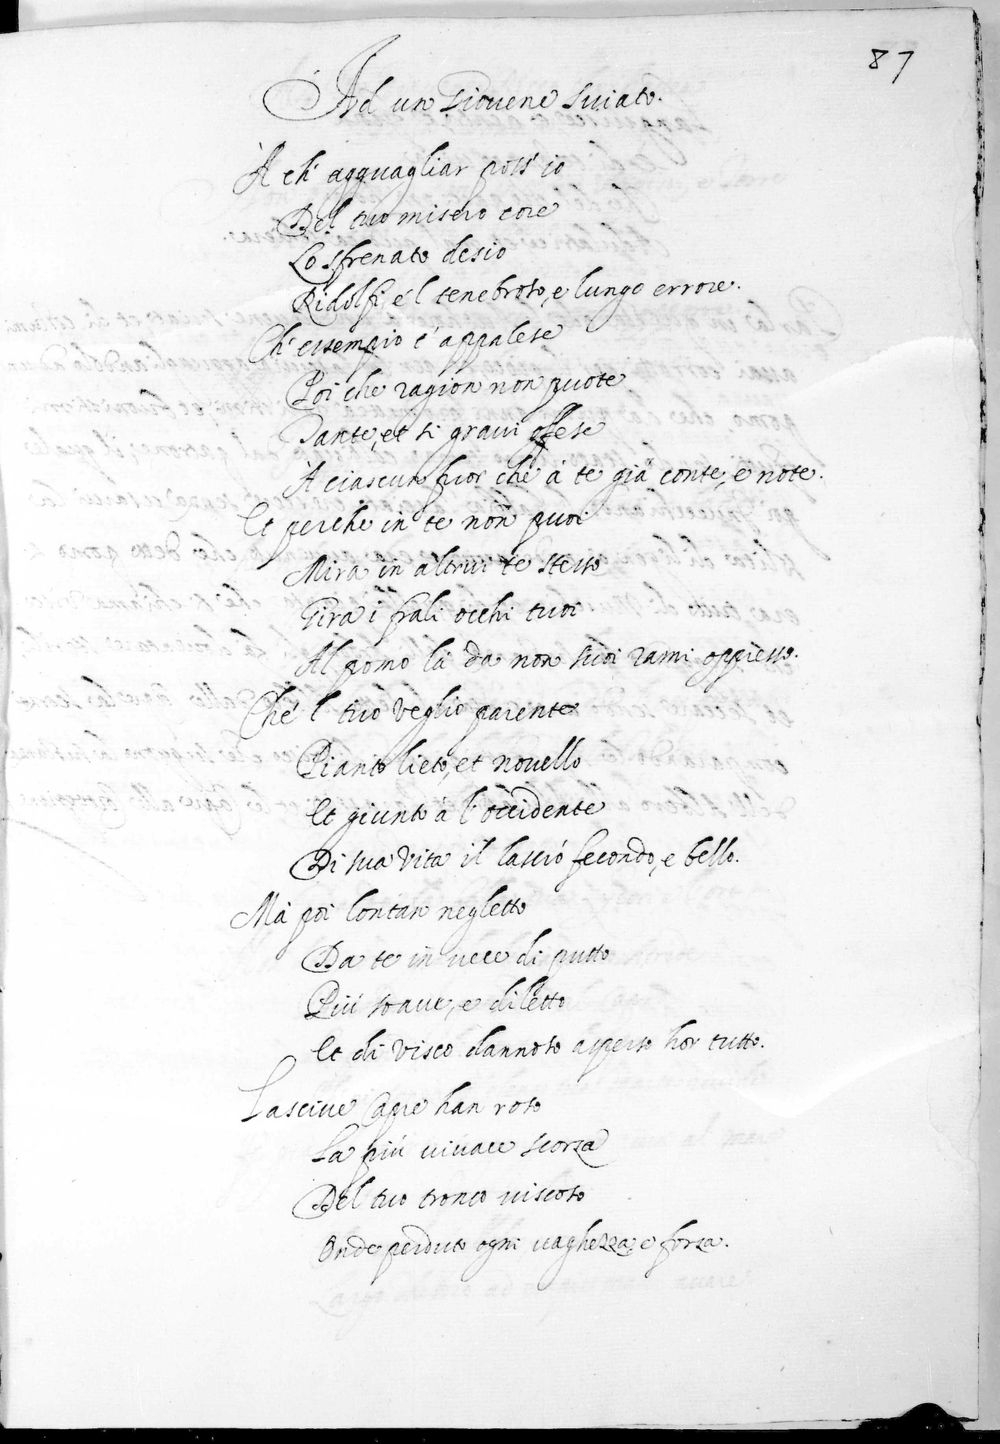 87
Ad un Giouene suiato.
A ch' agguagliar poss' io
Del tuo misero core
Lo sfrenato desio
Ridolfi, e 'l tenebroso, e lungo errore.
Ch' essempio è appalese
Poi che ragion non puote
Dante, et si graui offese
A ciascun fuor che à te già conte, e note.
Et perche in te non puoi
Mira in altrui te stesso
Gira i frali occhi tuoi
Al pomo là da non suoi rami oppresso.
Che 'l tuo veglio parente
Piantò lieto, et nouello
Et giunto à l' occidente
Di sua vita il lasciò fecondo, e bello.
Mà poi lontan negletto
Da te in uece di putto
Più soaue, e diletto
Et di visco dannoso asperso hor tutto.
Lasciue Capre han roso
La più viuace scorza
Del tuo tronco viscoso
Onde perduto ogni uaghezza, e forza.